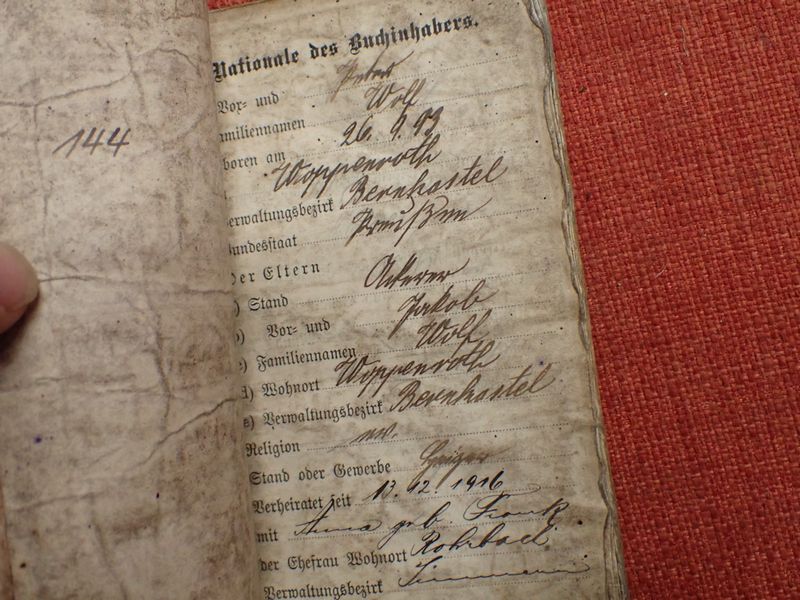 144
Nationale des Buchinhabers.
Vor- und Peter
amiliennamen Wolf
boren am 26. 9. 93
Woppenroth
erwaltungsbezirk Bernkastel
undesstaat Preußen
der Eltern
) Stand Ackerer
) Vor- und Jakob
) Familiennamen Wolf
d) Wohnort Woppenroth
e) Verwaltungsbezirk Bernkastel
Religion ev.
Stand oder Gewerbe
Verheiratet seit 13. 12. 1916
mit Anna geb. Frank
der Ehefrau Wohnort
Verwaltungsbezirk Simmern